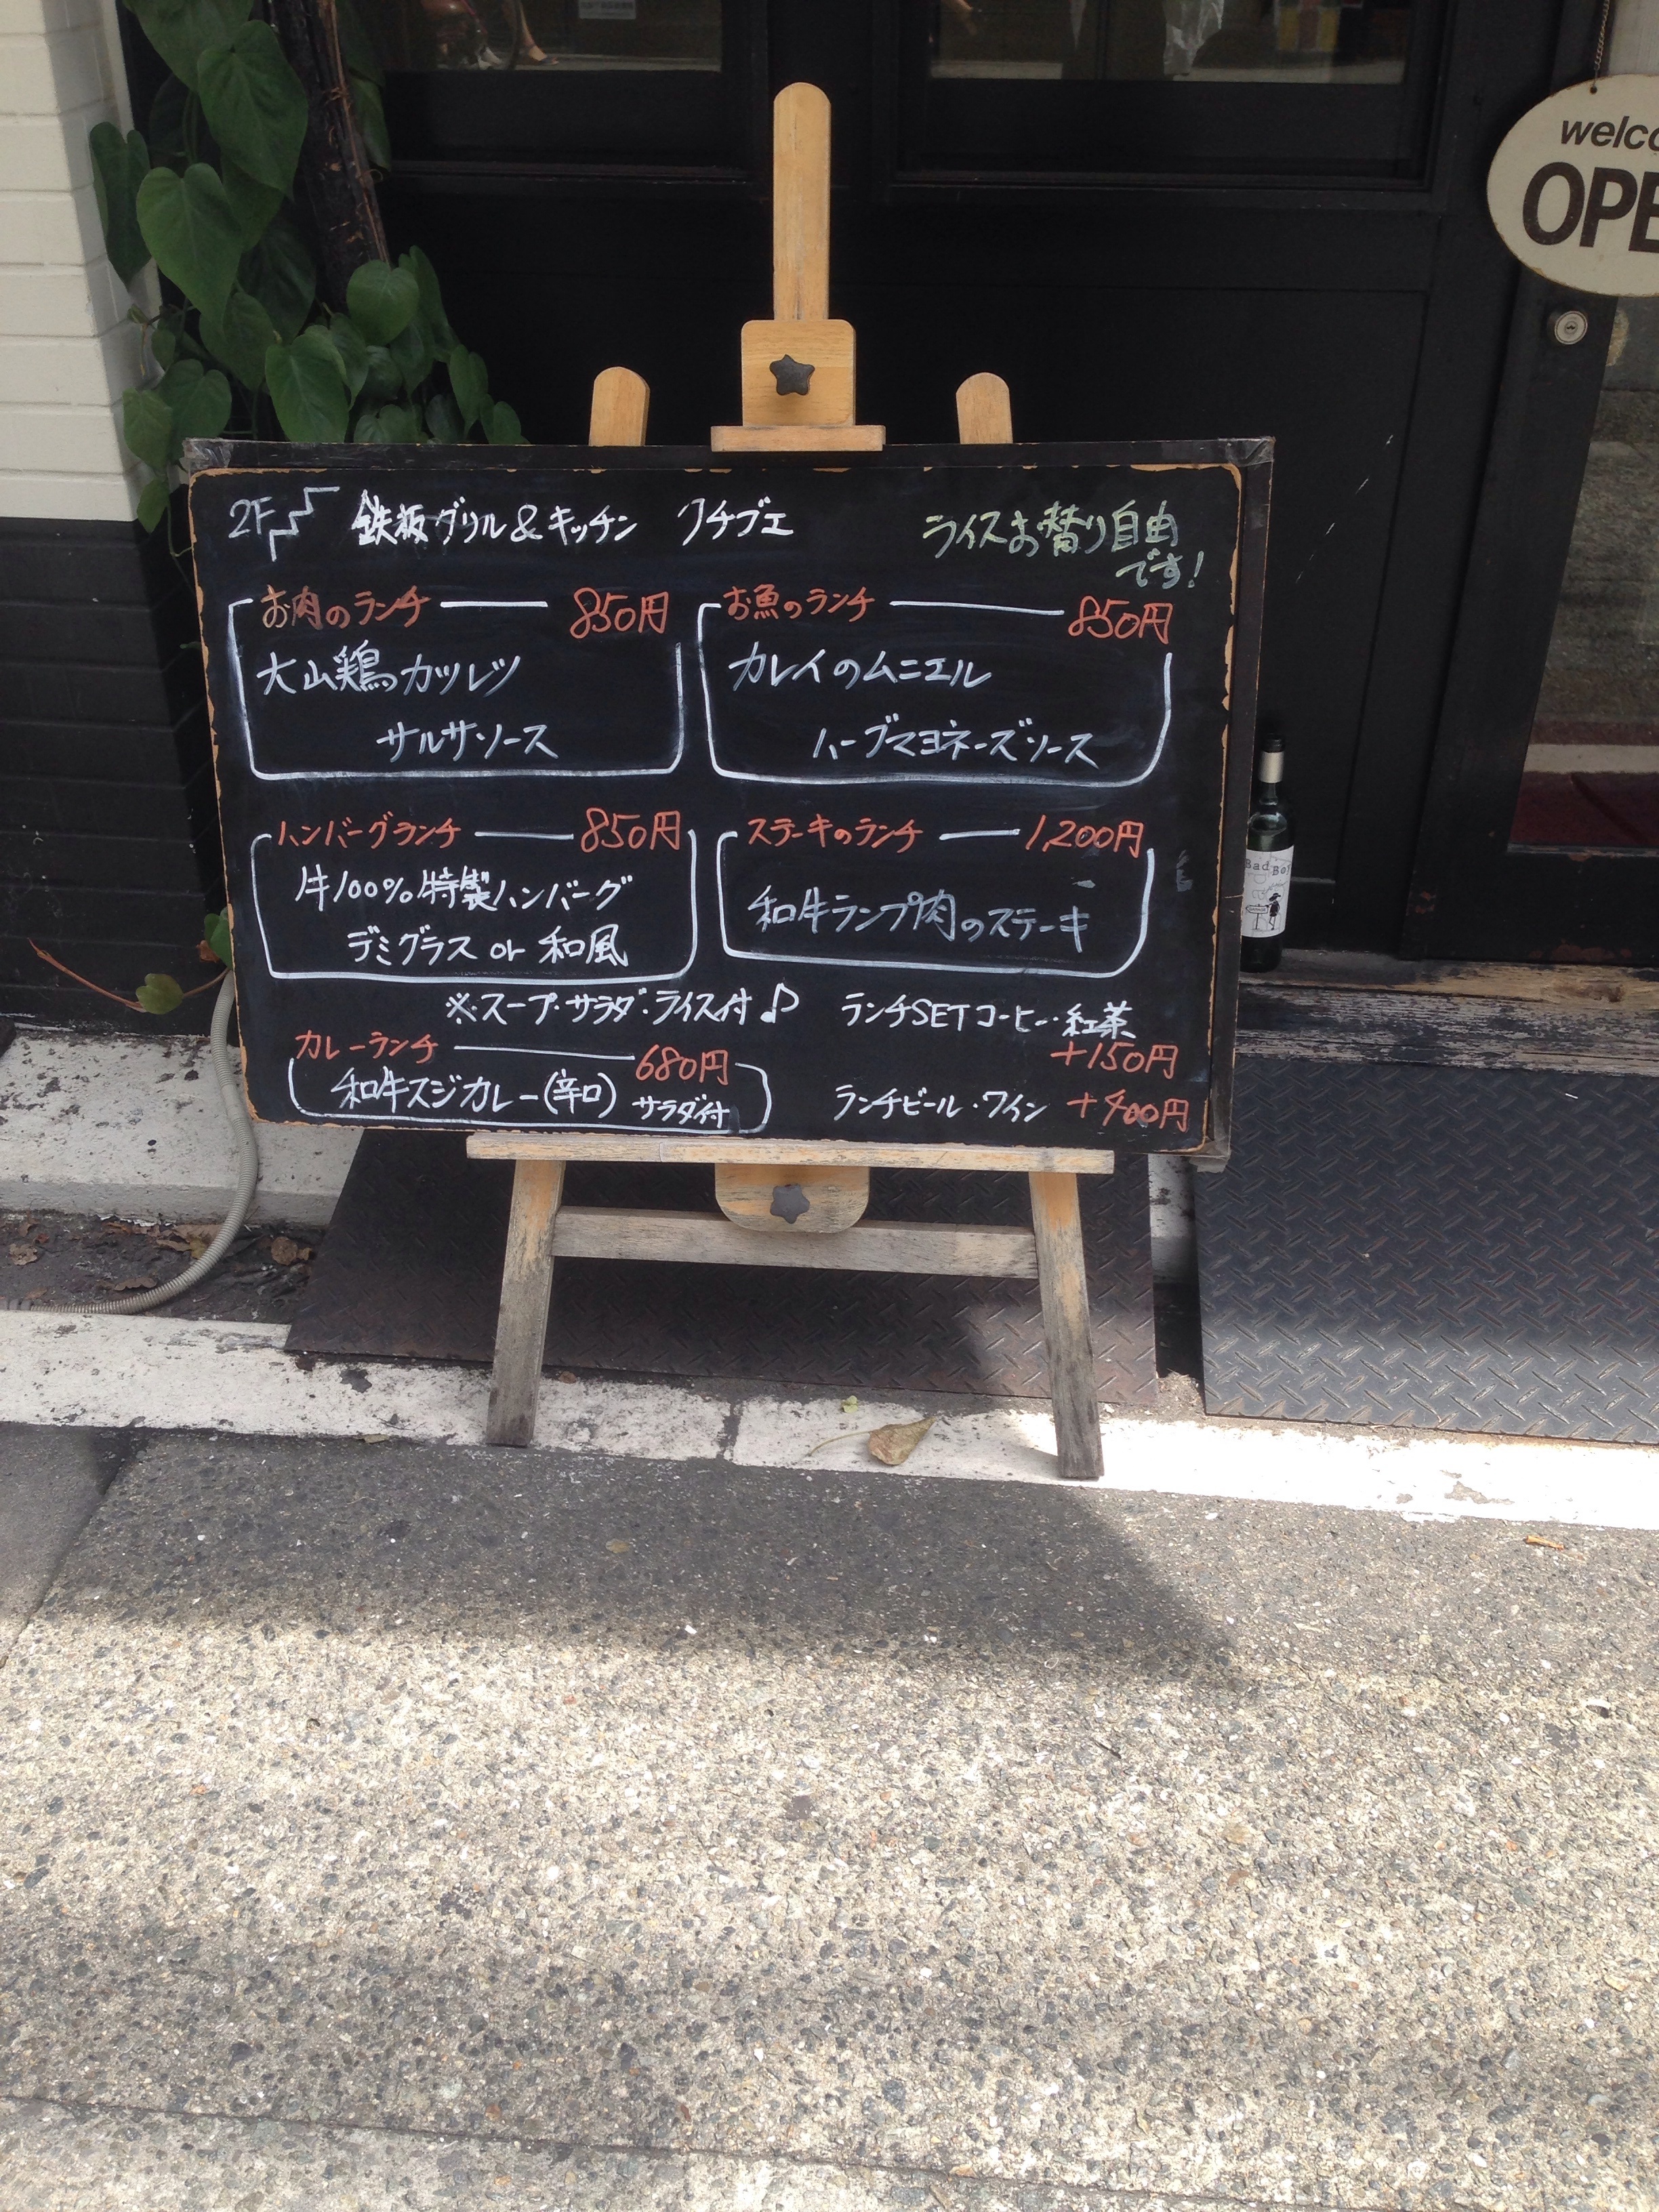 welco
OPE
2F 鉄板グリル&キッチン クチブエ
ライスお替り自由
です!
お肉のランチ 850円
大山鶏カツレツ
サルサソース
お魚のランチ 850円
カレイのムニエル
ハーブマヨネーズソース
ハンバーグランチ 850円
牛100%特製ハンバーグ
デミグラス or 和風
ステーキのランチ 1,200円
和牛ランプ肉のステーキ
※スープ・サラダ・ライス付♪
カレーランチ 680円
和牛スジカレー(辛口) サラダ付
ランチSETコーヒー・紅茶
+150円
ランチビール・ワイン +400円
Bad Boy